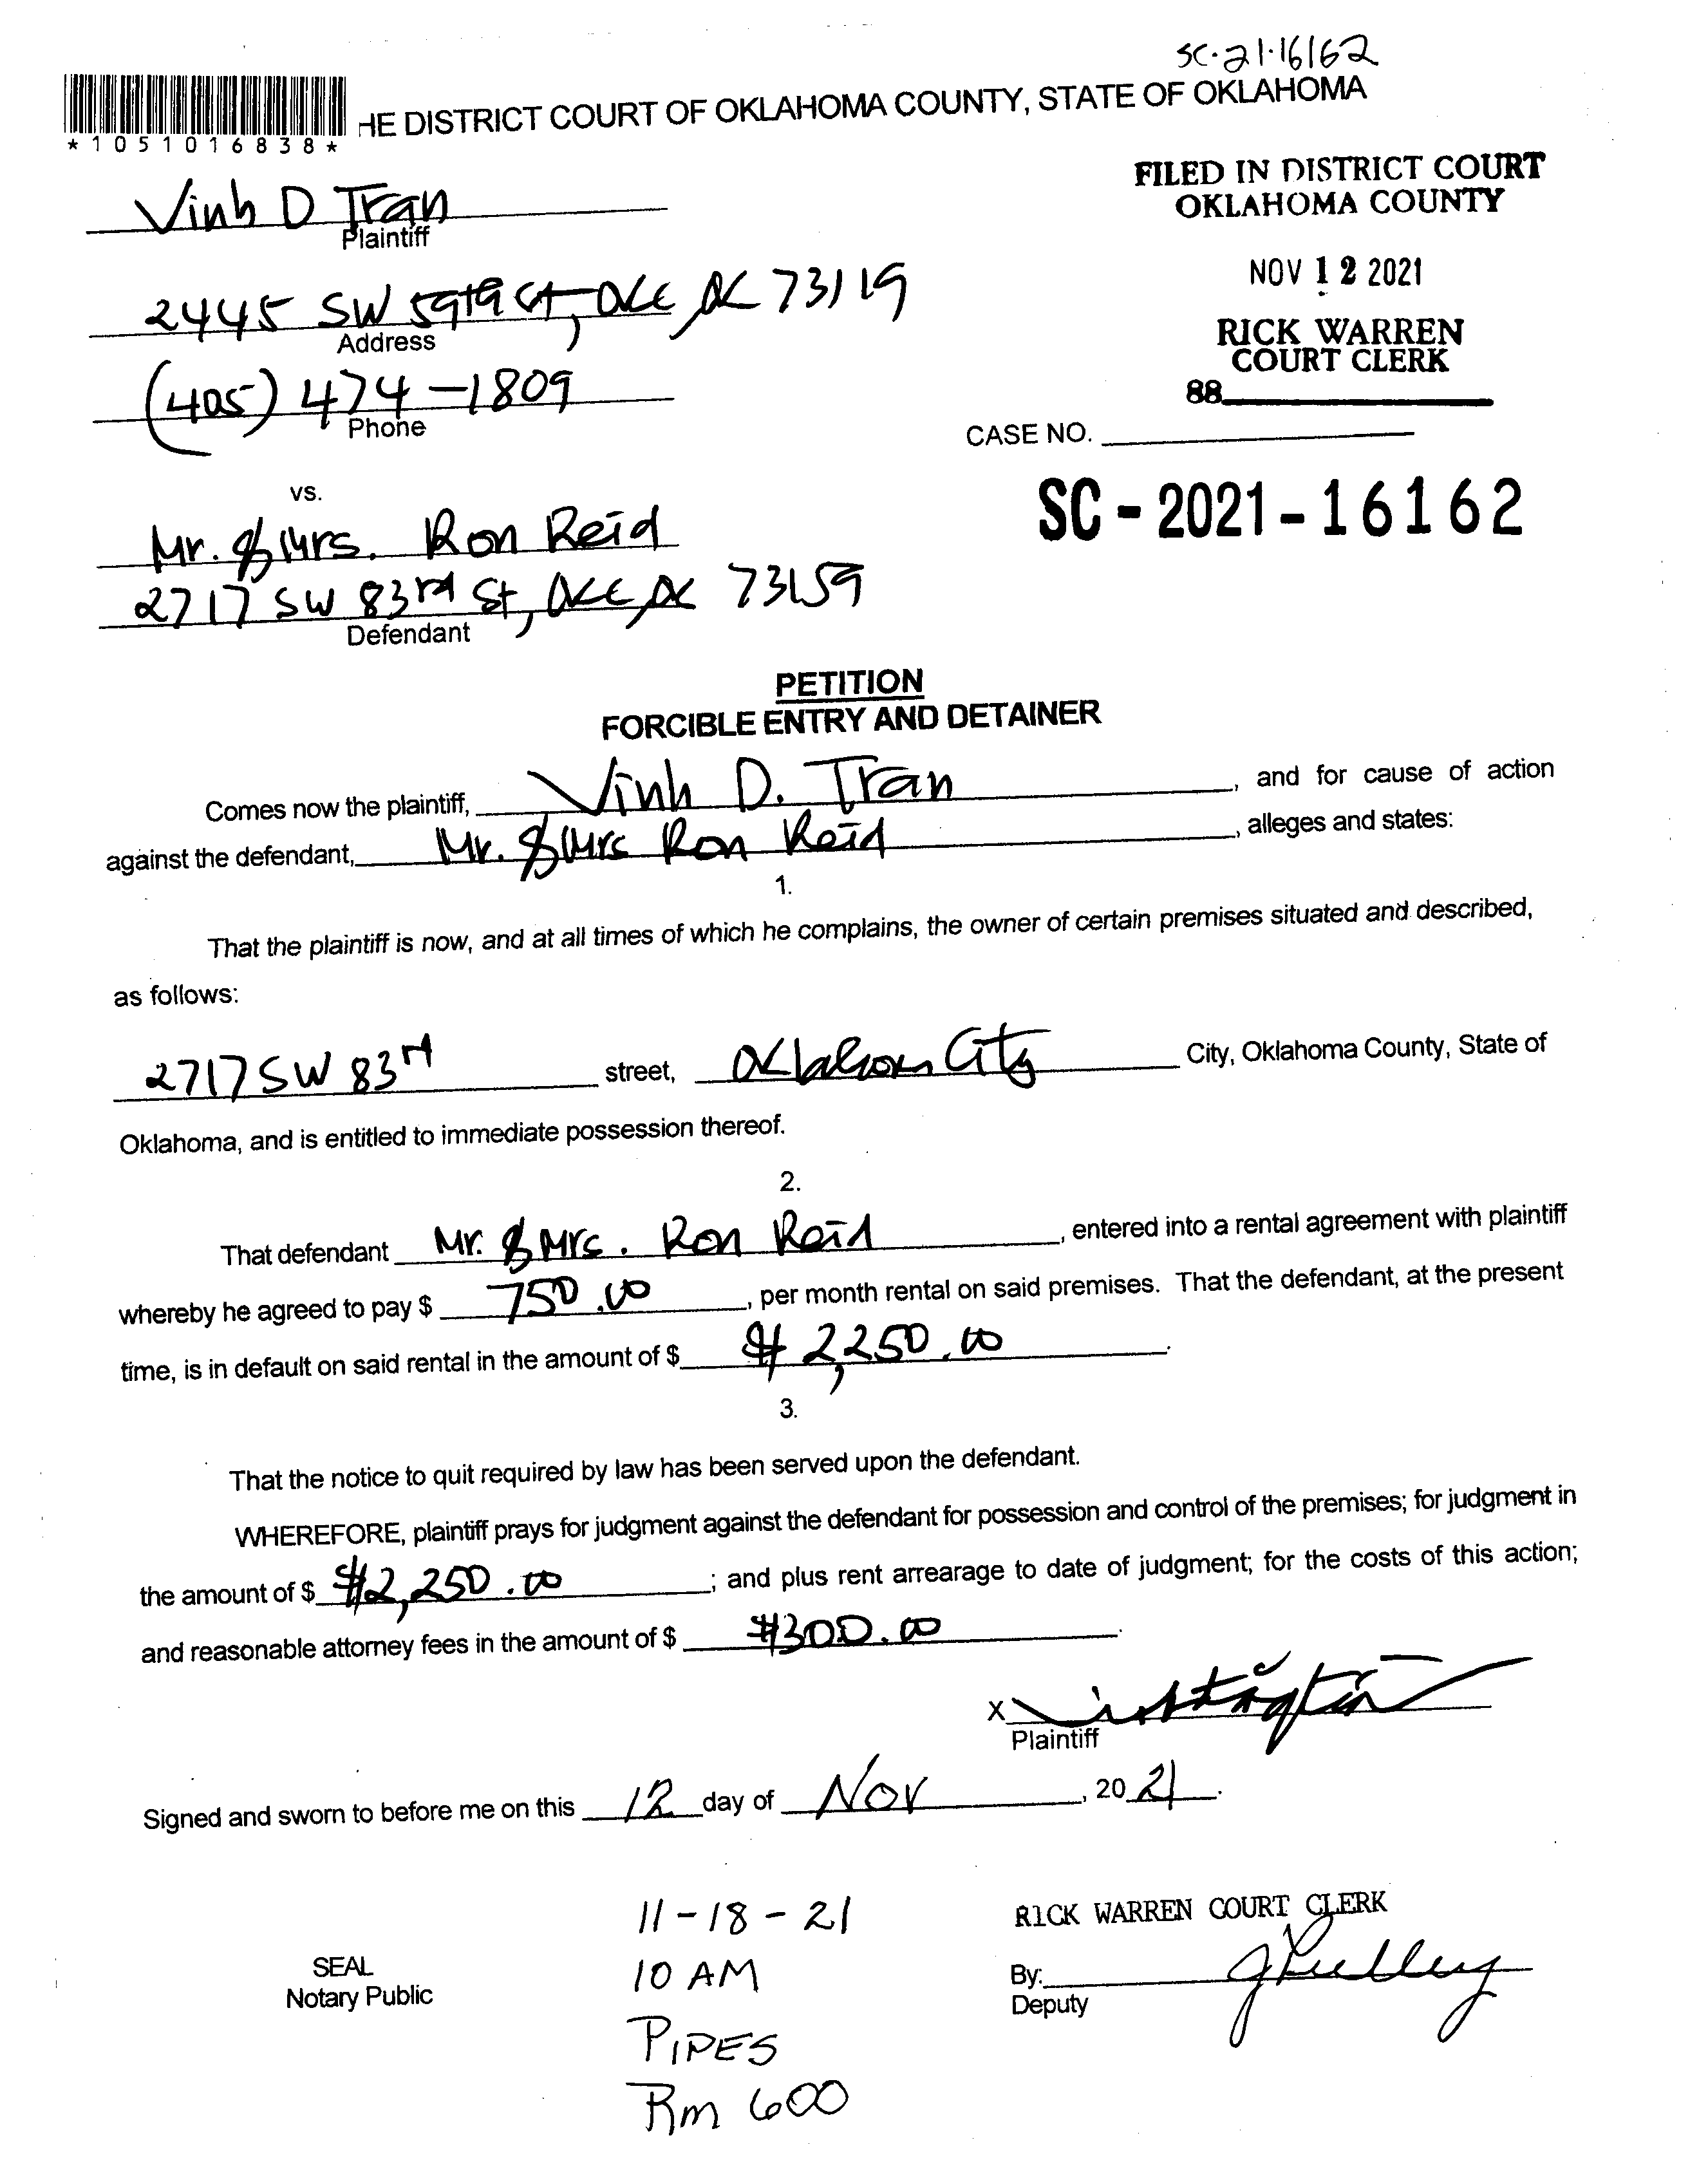 SC-21-16162
HE DISTRICT COURT OF OKLAHOMA COUNTY, STATE OF OKLAHOMA
*1051016838*
FILED IN DISTRICT COURT
OKLAHOMA COUNTY
Vinh D Tran
Plaintiff
NOV 12 2021
2445 SW 59th St, OKC, OK 73119
Address
RICK WARREN
COURT CLERK
88
(405) 474-1809
Phone
CASE NO.
vs.
SC-2021-16162
Mr. & Mrs. Ron Reid
2717 SW 83rd St, OKC, OK 73159
Defendant
PETITION
FORCIBLE ENTRY AND DETAINER
Comes now the plaintiff, Vinh D. Tran, and for cause of action
against the defendant, Mr. & Mrs Ron Reid, alleges and states:
1.
That the plaintiff is now, and at all times of which he complains, the owner of certain premises situated and described,
as follows:
2717 SW 83rd street, Oklahoma City City, Oklahoma County, State of
Oklahoma, and is entitled to immediate possession thereof.
2.
That defendant Mr. & Mrs. Ron Reid, entered into a rental agreement with plaintiff
whereby he agreed to pay $ 750.00, per month rental on said premises. That the defendant, at the present
time, is in default on said rental in the amount of $ $2,250.00.
3.
That the notice to quit required by law has been served upon the defendant.
WHEREFORE, plaintiff prays for judgment against the defendant for possession and control of the premises; for judgment in
the amount of $ $2,250.00; and plus rent arrearage to date of judgment; for the costs of this action;
and reasonable attorney fees in the amount of $ $300.00.
X
Plaintiff
Signed and sworn to before me on this 12 day of Nov, 2021.
11-18-21
RICK WARREN COURT CLERK
SEAL
10 AM
By:
Notary Public
Deputy
PIPES
Rm 600